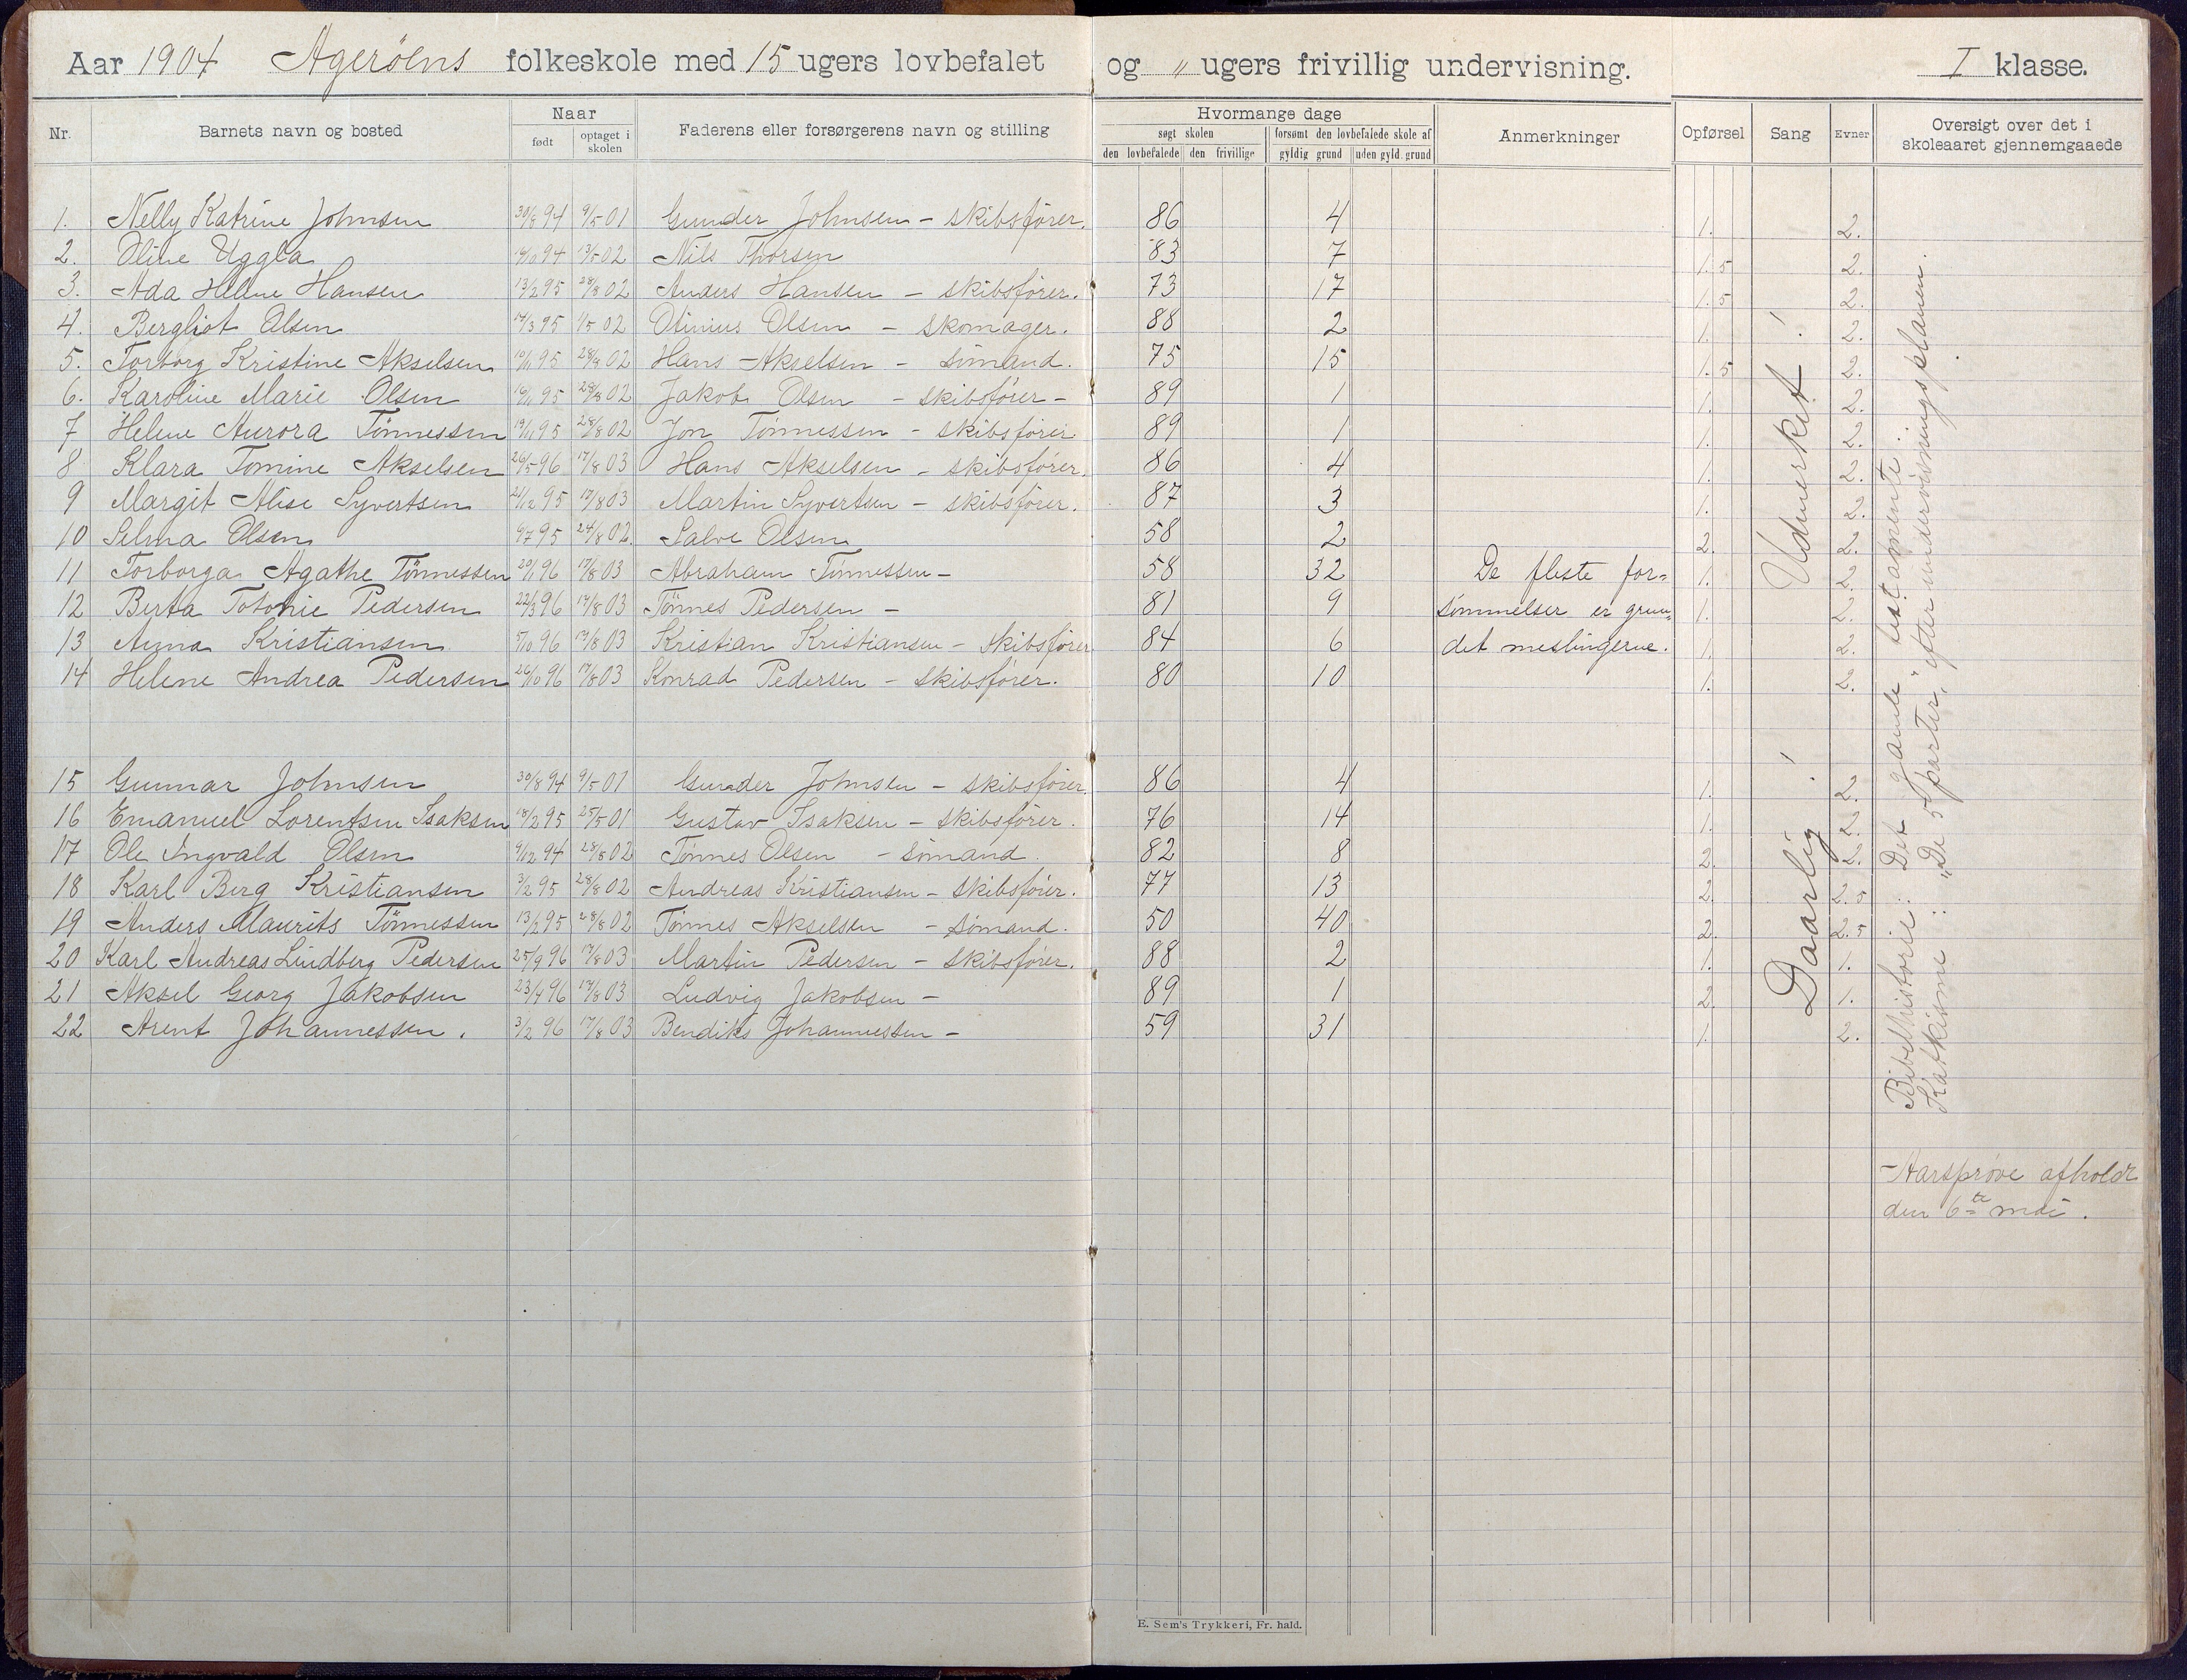 Aar 1904 Agerøens folkeskole med 15 ugers lovbefalet og " ugers frivillig undervisning. I klasse.
Nr. Barnets navn og bosted Naar født optaget i skolen Faderens eller forsørgerens navn og stilling Hvormange dage søgt skolen den lovbefalede den frivillige forsømt den lovbefalede skole af gyldig grund uden gyld. grund Anmerkninger Opførsel Sang Evner Oversigt over det i skoleaaret gjennemgaaede
1. Nelly Katrine Johnsen 30/8 94 9/5 01 Gunder Johnsen - skibsfører. 86 4 1. 2.
2. Oline Uggla 94 13/5 02 Nils Thorsen 83 7 1.5 2.
3. Ada Helene Hansen 13/2 95 28/8 02 Anders Hansen - skibsfører. 73 17 1.5 2.
4. Bergliot Olsen 14/3 95 1/5 02 Otinius Olsen - skomager. 88 2 1. 2.
5. Torborg Kristine Akselsen 95 28/8 02 Hans Akselsen - sømand. 75 15 1.5 2.
6. Karoline Marie Olsen 95 28/8 02 Jakob Olsen - skibsfører - 89 1 1. 2.
7 Helene Aurora Tønnessen 19/11 95 28/8 02 Jon Tønnessen - skibsfører. 89 1 1. 2.
8 Klara Tomine Akselsen 26/5 96 17/8 03 Hans Akselsen - skibsfører. 86 4 1. 2.
9 Margit Alise Syvertsen 21/12 95 17/8 03 Martin Syvertsen - skibsfører. 87 3 1. 2.
10 Selma Olsen 9/7 95 24/8 02. Salve Olsen 58 2 2. 2.
11 Torborga Agathe Tønnessen 20/1 96 17/8 03 Abraham Tønnessen - 58 32 De fleste for= 1. 2.
12 Berta Totonie Pedersen 22/3 96 17/8 03 Tønnes Pedersen - 81 9 sømmelser er grun= 1. 2.
13 Anna Kristiansen 5/10 96 17/8 03 Kristian Kristiansen - skibsfører 84 6 det meslingerne. 1. 2.
14 Helene Andrea Pedersen 26/10 96 17/8 03 Konrad Pedersen - skibsfører. 80 10 1. 2.
Udmerket!
15 Gunnar Johnsen 30/8 94 9/5 01 Gunder Johnsen - skibsfører. 86 4 1. 2.
16 Emanuel Lorentsen Isaksen 18/2 95 25/5 01 Gustav Isaksen - skibsfører. 76 14 1. 2.
17 Ole Ingvald Olsen 9/12 94 28/8 02 Tønnes Olsen - sømand. 82 8 2. 2.
18 Karl Berg Kristiansen 3/2 95 28/8 02 Andreas Kristiansen - skibsfører. 77 13 2. 2.5
19 Anders Maurits Tønnessen 13/2 95 28/8 02 Tønnes Akselsen - sømand. 50 40 2. 2.5
20 Karl Andreas Lindberg Pedersen 25/9 96 17/8 03 Martin Pedersen - skibsfører. 88 2 1. 1.
21 Aksel Georg Jakobsen 23/4 96 17/8 03 Ludvig Jakobsen - 89 1 2. 1.
22 Arent Johannessen. 3/2 96 17/8 03 Bendiks Johannessen - 59 31 1. 2.
Daarlig!
Bibelhistorie: Det gamle testamente.
Katkisme: "De 5 parter," efter undervisningsplanen.
Aarsprøve afholdt
den 6te mai.
E. Sem's Trykkeri, Fr. hald.